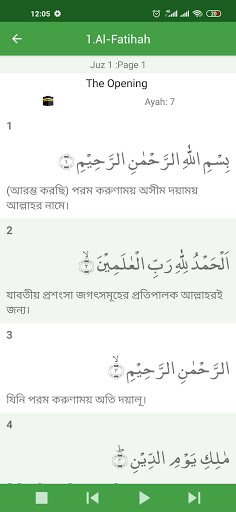 12:05
1.Al-Fatihah
Juz 1 :Page 1
The Opening
Ayah: 7
1
بِسْمِ اللّٰهِ الرَّحْمٰنِ الرَّحِيْمِ ۝١
(আরম্ভ করছি) পরম করুণাময় অসীম দয়াময়
আল্লাহর নামে।
2
اَلْحَمْدُ لِلّٰهِ رَبِّ الْعٰلَمِيْنَ ۙ۝٢
যাবতীয় প্রশংসা জগৎসমূহের প্রতিপালক আল্লাহরই
জন্য।
3
الرَّحْمٰنِ الرَّحِيْمِ ۙ۝٣
যিনি পরম করুণাময় অতি দয়ালু।
4
مٰلِكِ يَوْمِ الدِّيْنِ ۗ۝٤